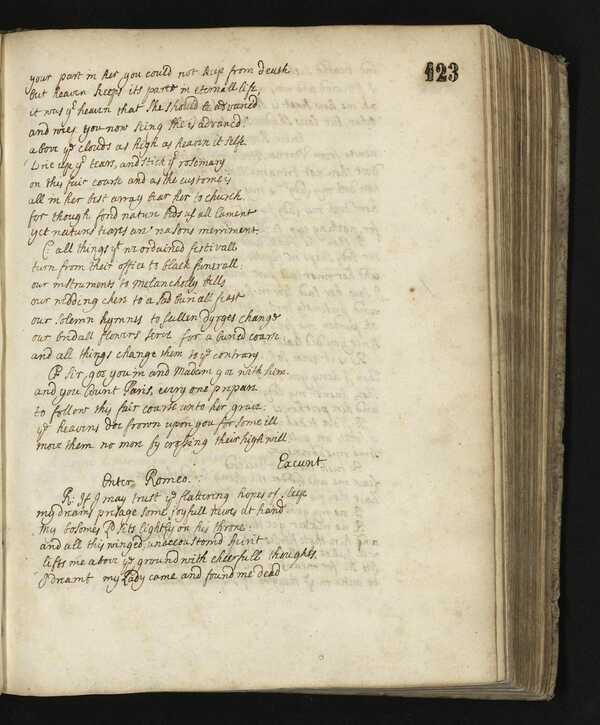 123
your part in her you could not keep from death
but heaven keeps its part in eternall life,
it was yͤ heaven that she should be advanced
and weep you now seing she is advanced?
above yͤ clouds as high as heaven it selfe
Drie up yͬ tears, and stick yͬ rosemary
on this fair course and as the custome is
all in her best array bear her to church
for though fond nature bids us all lament
yet natures tears are reasons merriment.
C all things yͭ we ordained festivall
turn from their office to black funerall:
our instruments to melancholly bells
our wedding chear to a sad buriall feast
our solemn hymnes to sullen dyrges change
our bridall flowers serve for a buried coarse
and all things change them to yͤ contrary
Sir, goe you in and Madam goe with him.
and you Count Paris, every one prepare
to follow this fair course unto her grave:
yͤ heavens doe frown upon you for some ill
move them no more by crossing their high will
Exeunt
Enter Romeo.
R. If I may trust yͤ flattering hopes of sleep
my dreams presage some joyfull news at hand
My bosomes Ld sits lightly on his throne.
and all this winged unaccustomd spirit
lifts me above yͤ ground with cheerfull thoughts.
I dreamt my Lady came and found me dead